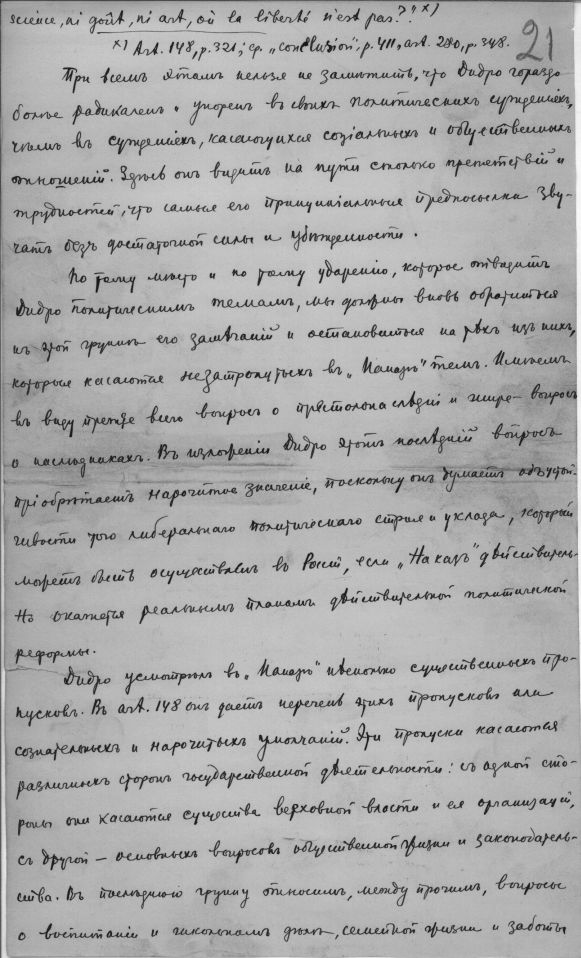 science, ni goût, ni art, où la liberté n'est pas?" x)
x) Art. 148, p. 321; ср. „conclusion", p. 411, art. 280, p. 348.
21
При всемъ этомъ нельзя не замѣтить, что Дидро гораздо
болѣе радикаленъ и упоренъ въ своихъ политическихъ сужденіяхъ,
чѣмъ въ сужденіяхъ, касающихся соціальныхъ и общественныхъ
отношеній. Здѣсь онъ видитъ на пути столько препятствій и
трудностей, что самыя его принципіальныя предпосылки зву-
чатъ безъ достаточной силы и убѣжденности.
По тому мѣсту и по тому ударенію, которое отводитъ
Дидро политическимъ темамъ, мы должны вновь обратиться
къ этой группѣ его замѣчаній и остановиться на рядѣ изъ нихъ,
которыя касаются незатронутыхъ въ „Наказѣ" темъ. Имѣемъ
въ виду прежде всего вопросъ о престолонаслѣдіи и шире – вопросъ
о наслѣдникахъ. Въ изложеніи Дидро этотъ послѣдній вопросъ
пріобрѣтаетъ нарочитое значеніе, поскольку онъ думаетъ объ устой-
чивости того либеральнаго политическаго строя и уклада, который
можетъ быть осуществленъ въ Россіи, если „Наказъ" дѣйствитель-
но окажется реальнымъ планомъ дѣйствительной политической
реформы.
Дидро усмотрѣлъ въ „Наказѣ" нѣсколько существенныхъ про-
пусковъ. Въ art. 148 онъ даетъ перечень этихъ пропусковъ или
сознательныхъ и нарочитыхъ умолчаній. Эти пропуски касаются
различныхъ сторонъ государственной дѣятельности: съ одной сто-
роны они касаются существа верховной власти и ея организаціи,
съ другой – основныхъ вопросовъ общественной жизни и законодатель-
ства. Въ послѣднюю группу относимъ, между прочимъ, вопросы
о воспитаніи и школьномъ дѣлѣ, семейной жизни и заботы